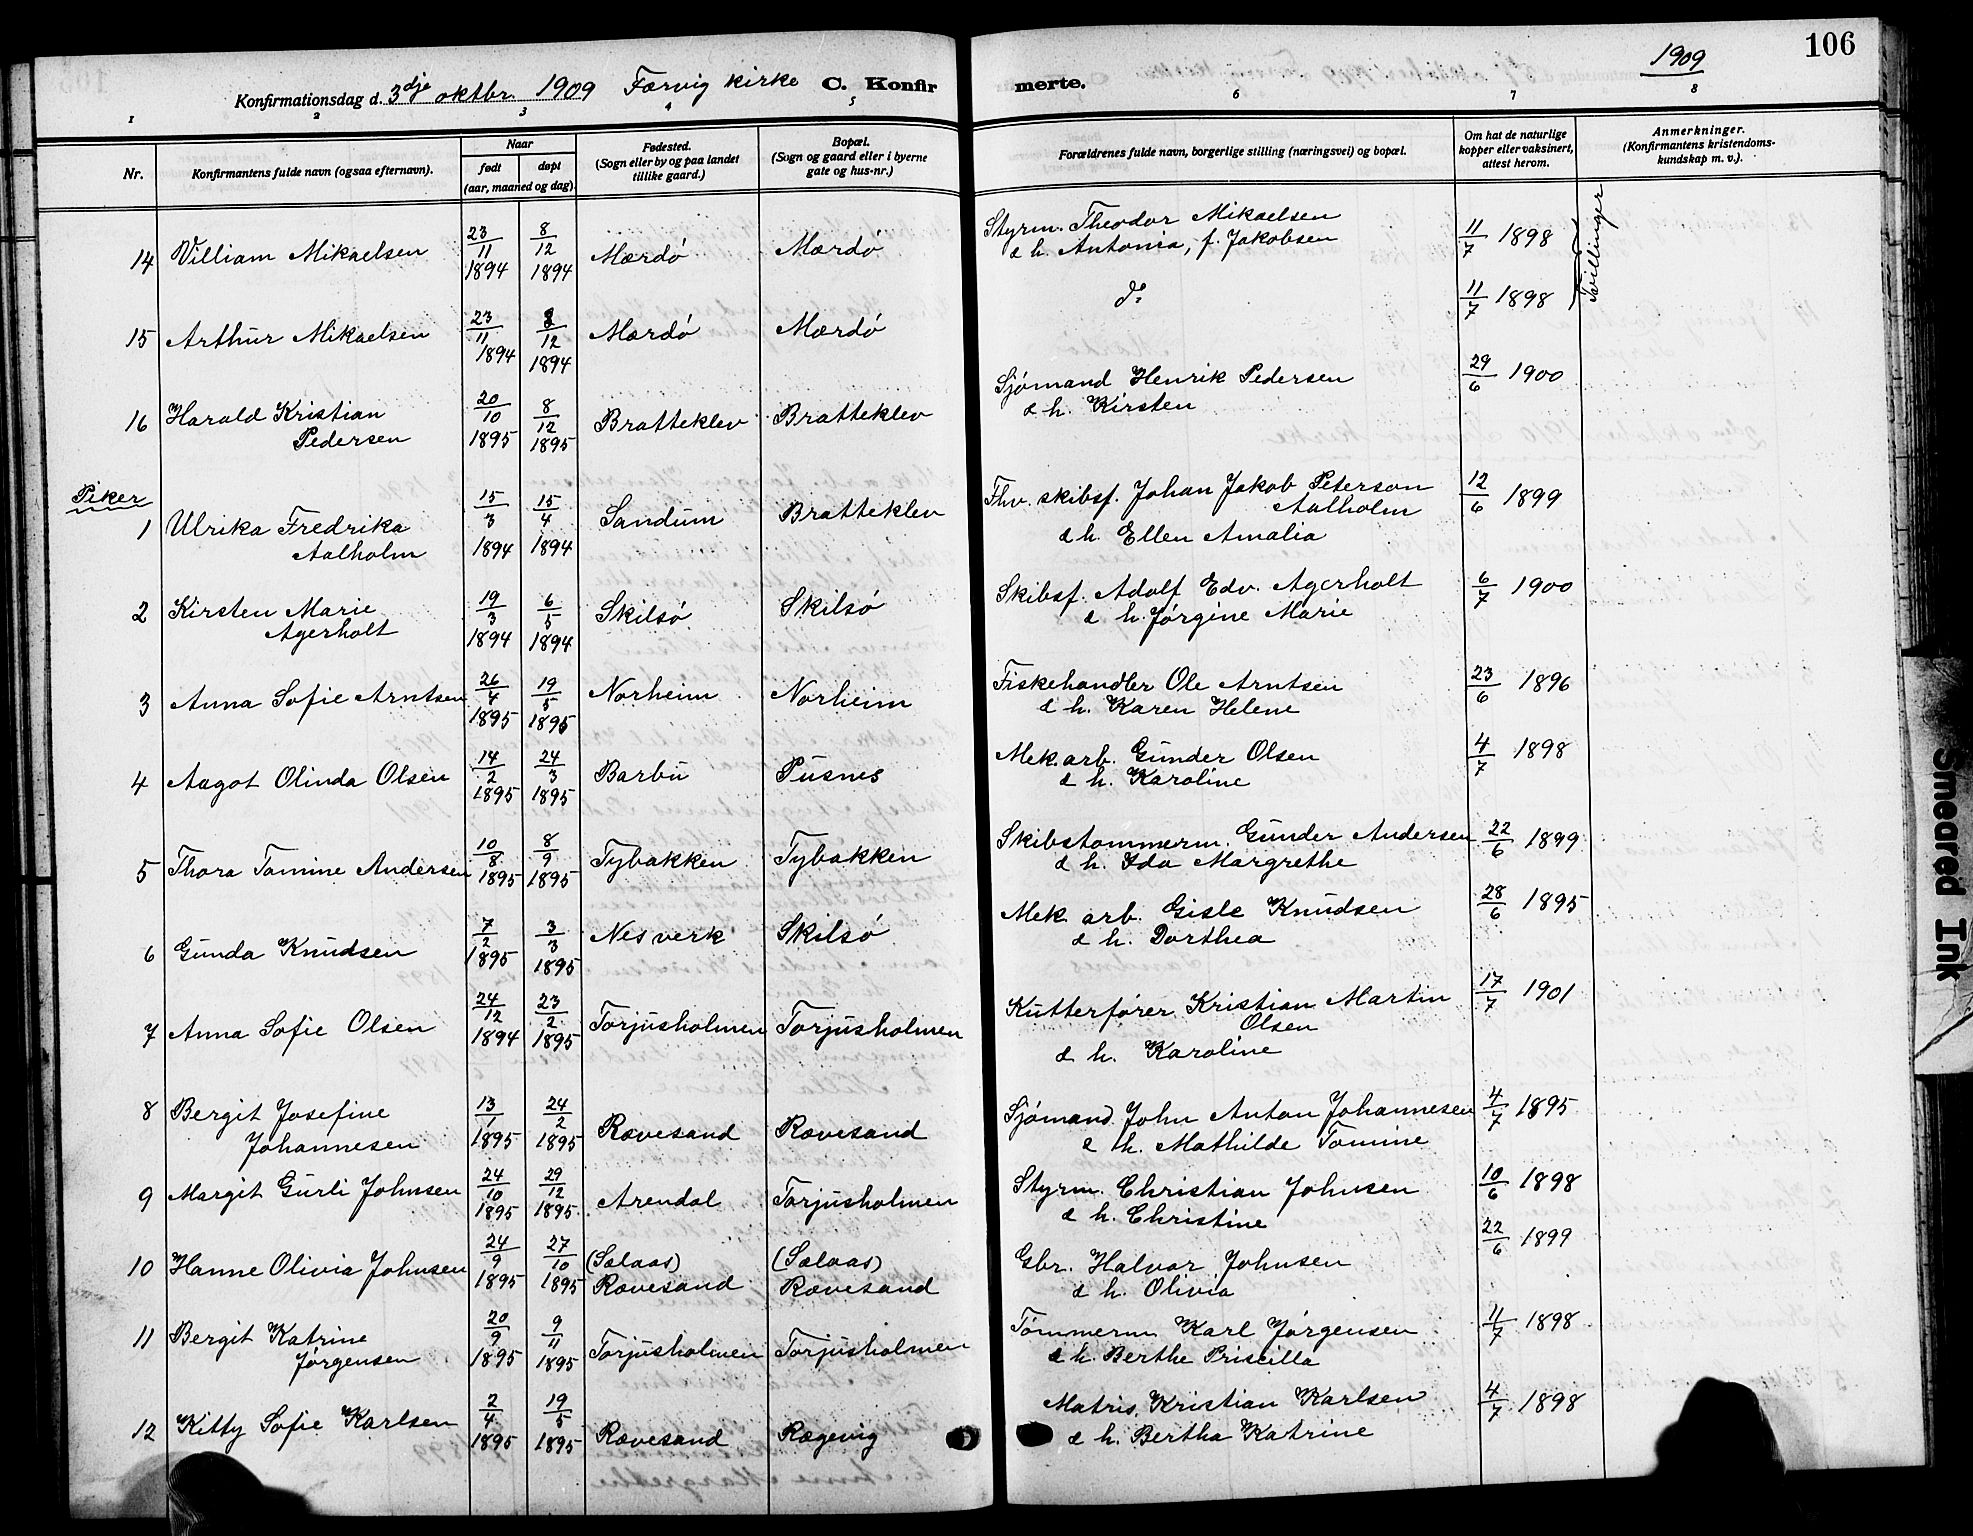 1909
106
Konfirmationsdag d. 3dje oktbr. 1909 Færvig kirke C. Konfirmerte.
1 2 3 4 5 6 7 8
Nr.
Konfirmantens fulde navn (ogsaa efternavn).
Naar
født
døpt
(aar, maaned og dag).
Fødested.
(Sogn eller by og paa landet
tillike gaard.)
Bopæl.
(Sogn og gaard eller i byerne
gate og hus-nr.)
Forældrenes fulde navn, borgerlige stilling (næringsvei) og bopæl.
Om hat de naturlige
kopper eller vaksinert,
attest herom.
Anmerkninger.
(Konfirmantens kristendoms-
kundskap m. v.).
14 William Mikaelsen 23/11 1894 8/12 1894 Mærdø Mærdø Styrm. Theodor Mikaelsen
& h. Antonia, f. Jakobsen 11/7 1898
Tvillinger
15 Arthur Mikaelsen 23/11 1894 8/12 1894 Mærdø Mærdø do 11/7 1898
16 Harald Kristian
Pedersen 20/10 1895 8/12 1895 Bratteklev Bratteklev Sjømand Henrik Pedersen
& h. Kirsten 29/6 1900
Piker
1 Ulrika Fredrika
Aalholm 15/3 1894 15/4 1894 Sandum Bratteklev Fhv. skibsf. Johan Jakob Peterson
Aalholm
& h. Ellen Amalia 12/6 1899
2 Kirsten Marie
Agerholt 19/3 1894 6/5 1894 Skilsø Skilsø Skibsf. Adolf Edv. Agerholt
& h. Jørgine Marie 6/7 1900
3 Anna Sofie Arntsen 26/4 1895 19/5 1895 Norheim Norheim Fiskehandler Ole Arntsen
& h. Karen Helene 23/6 1896
4 Aagot Olinda Olsen 14/2 1895 24/3 1895 Barbu Pusnes Mek. arb. Gunder Olsen
& h. Karoline 4/7 1898
5 Thora Tomine Andersen 10/8 1895 8/9 1895 Tybakken Tybakken Skibstommerm. Gunder Andersen
& h. Ida Margrethe 22/6 1899
6 Gunda Knudsen 7/2 1895 3/3 1895 Nesverk Skilsø Mek. arb. Gisle Knudsen
& h. Dorthea 28/6 1895
7 Anna Sofie Olsen 24/12 1894 23/2 1895 Torjusholmen Torjusholmen Kutterfører Kristian Martin
Olsen
& h. Karoline 17/7 1901
8 Bergit Josefine
Johannesen 13/1 1895 24/2 1895 Rævesand Rævesand Sjømand John Anton Johannesen
& h. Mathilde Tomine 4/7 1895
9 Margit Gurli Johnsen 24/10 1895 29/12 1895 Arendal Torjusholmen Styrm. Christian Johnsen
& h. Christine 10/6 1898
10 Hanne Olivia Johnsen 24/9 1895 27/10 1895 (Salaas)
Rævesand (Salaas)
Rævesand Gbr. Halvor Johnsen
& h. Olivia 22/6 1899
11 Bergit Katrine
Jørgensen 20/9 1895 9/11 1895 Torjusholmen Torjusholmen Tømmerm Karl Jørgensen
& h. Berthe Priscilla 11/7 1898
12 Kitty Sofie Karlsen 2/4 1895 19/5 1895 Rævesand Rægevig Matros Kristian Karlsen
& h. Bertha Katrine 4/7 1898
Smeared Ink